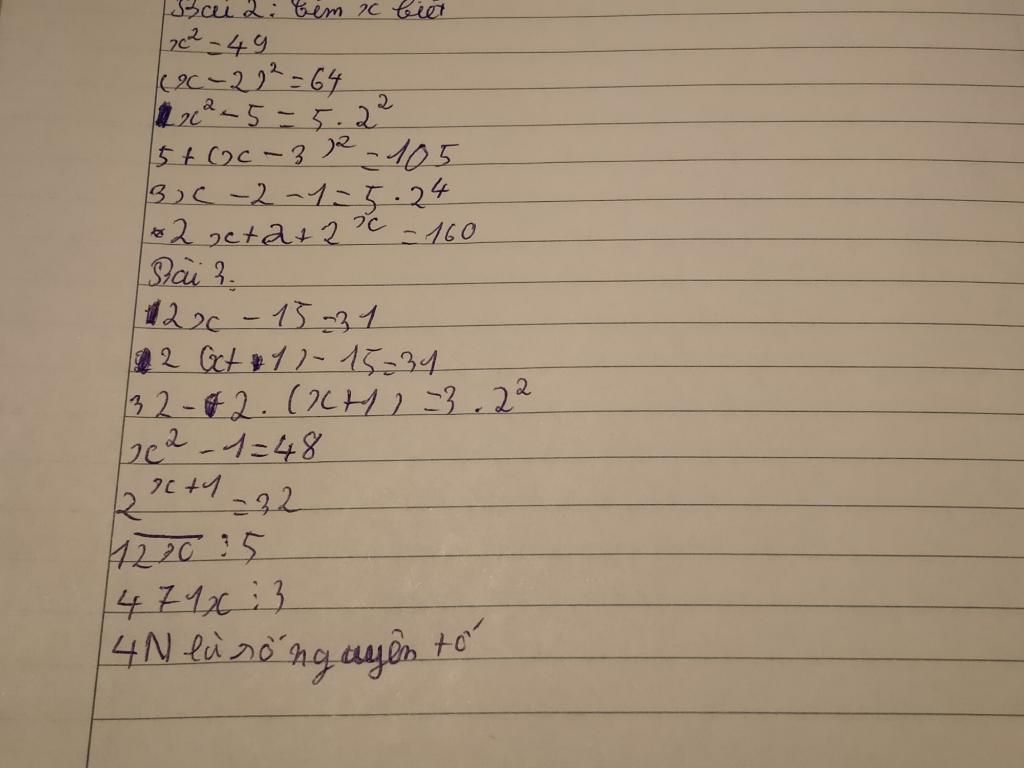 Bài 2: tìm x biết
x² = 49
(x - 2)² = 64
x² - 5 = 5 . 2²
5 + (x - 3)² = 105
3x - 2 - 1 = 5 . 2⁴
2 x + 2 + 2ˣ = 160
Bài 3:
2x - 15 = 31
2 (x + 1) - 15 = 31
32 - 2 . (x + 1) = 3 . 2²
x² - 1 = 48
2ˣ⁺¹ = 32
1̅2̅x̅ ⋮ 5
471x ⋮ 3
4N là số nguyên tố